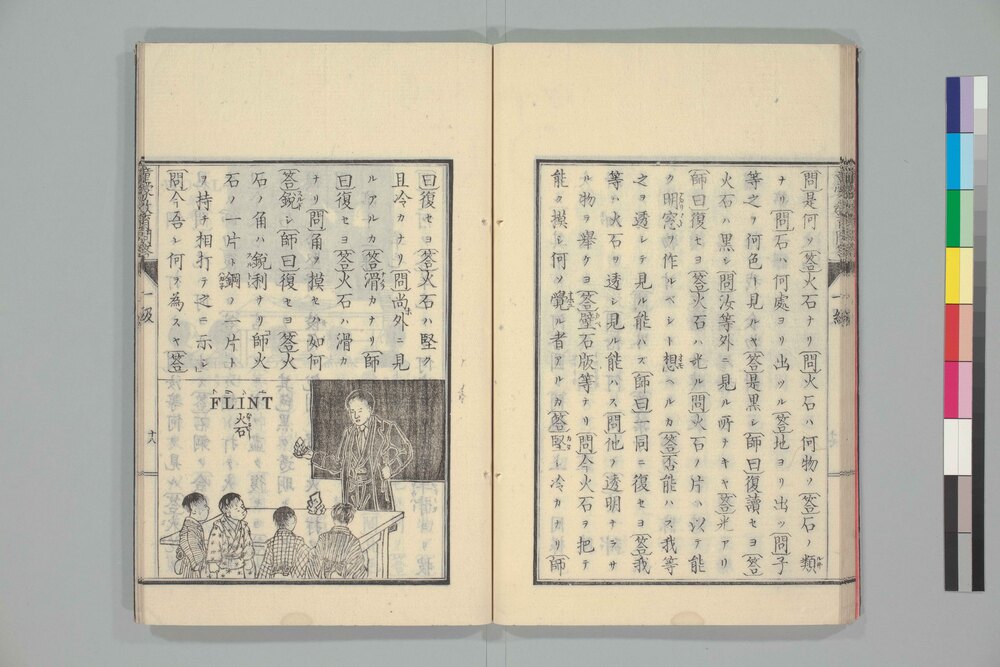 問是何ソ答火石ナリ問火石ハ何物ソ答石ノ類
ナリ問石ハ何處ヨリ出ツル答地ヨリ出ツ問子
等之ヲ何色ト見ルヤ答是黒シ師曰復讀セヨ答
火石ハ黒シ問汝等外ニ見ル所ナキヤ答光アリ
師曰復セヨ答火石ハ光ル問火石ノ片ハ以テ能
ク明窓ヲ作ルベシト想ヘルカ答否能ハス我等
之ヲ透シテ見ル能ハス師曰一同ニ復セヨ答我
等ハ火石ヲ透シ見ル能ハス問他ノ透明ナラサ
ル物ヲ擧ケヨ答壁石版等ナリ問今火石ヲ把テ
能ク摸シ何ヲ覺ル者アルカ答堅シ冷カナリ師
一編
曰復セヨ答火石ハ堅ク
且冷カナリ問尚外ニ見
ルアルカ答滑カナリ師
曰復セヨ答火石ハ滑カ
ナリ問角ヲ摸セハ如何
答鋭シ師曰復セヨ答火
石ノ角ハ鋭利ナリ師火
石ノ一片ト鋼ノ一片ト
ヲ持チ相打テ之ニ示シ
問今吾レ何ヲ為スヤ答
FLINT
火石
一級
十八